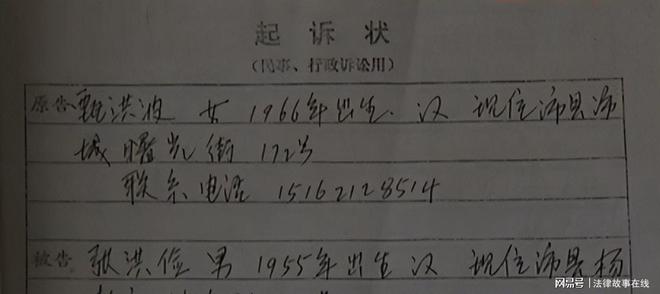 起诉状
(民事、行政诉讼用)
原告 甄洪波 女 1966年出生. 汉 现住沛县沛
城曙光街172号
联系电话 15162128514
被告 张洪俭 男 1955年出生 汉 现住沛县杨
网易号 | 法律故事在线